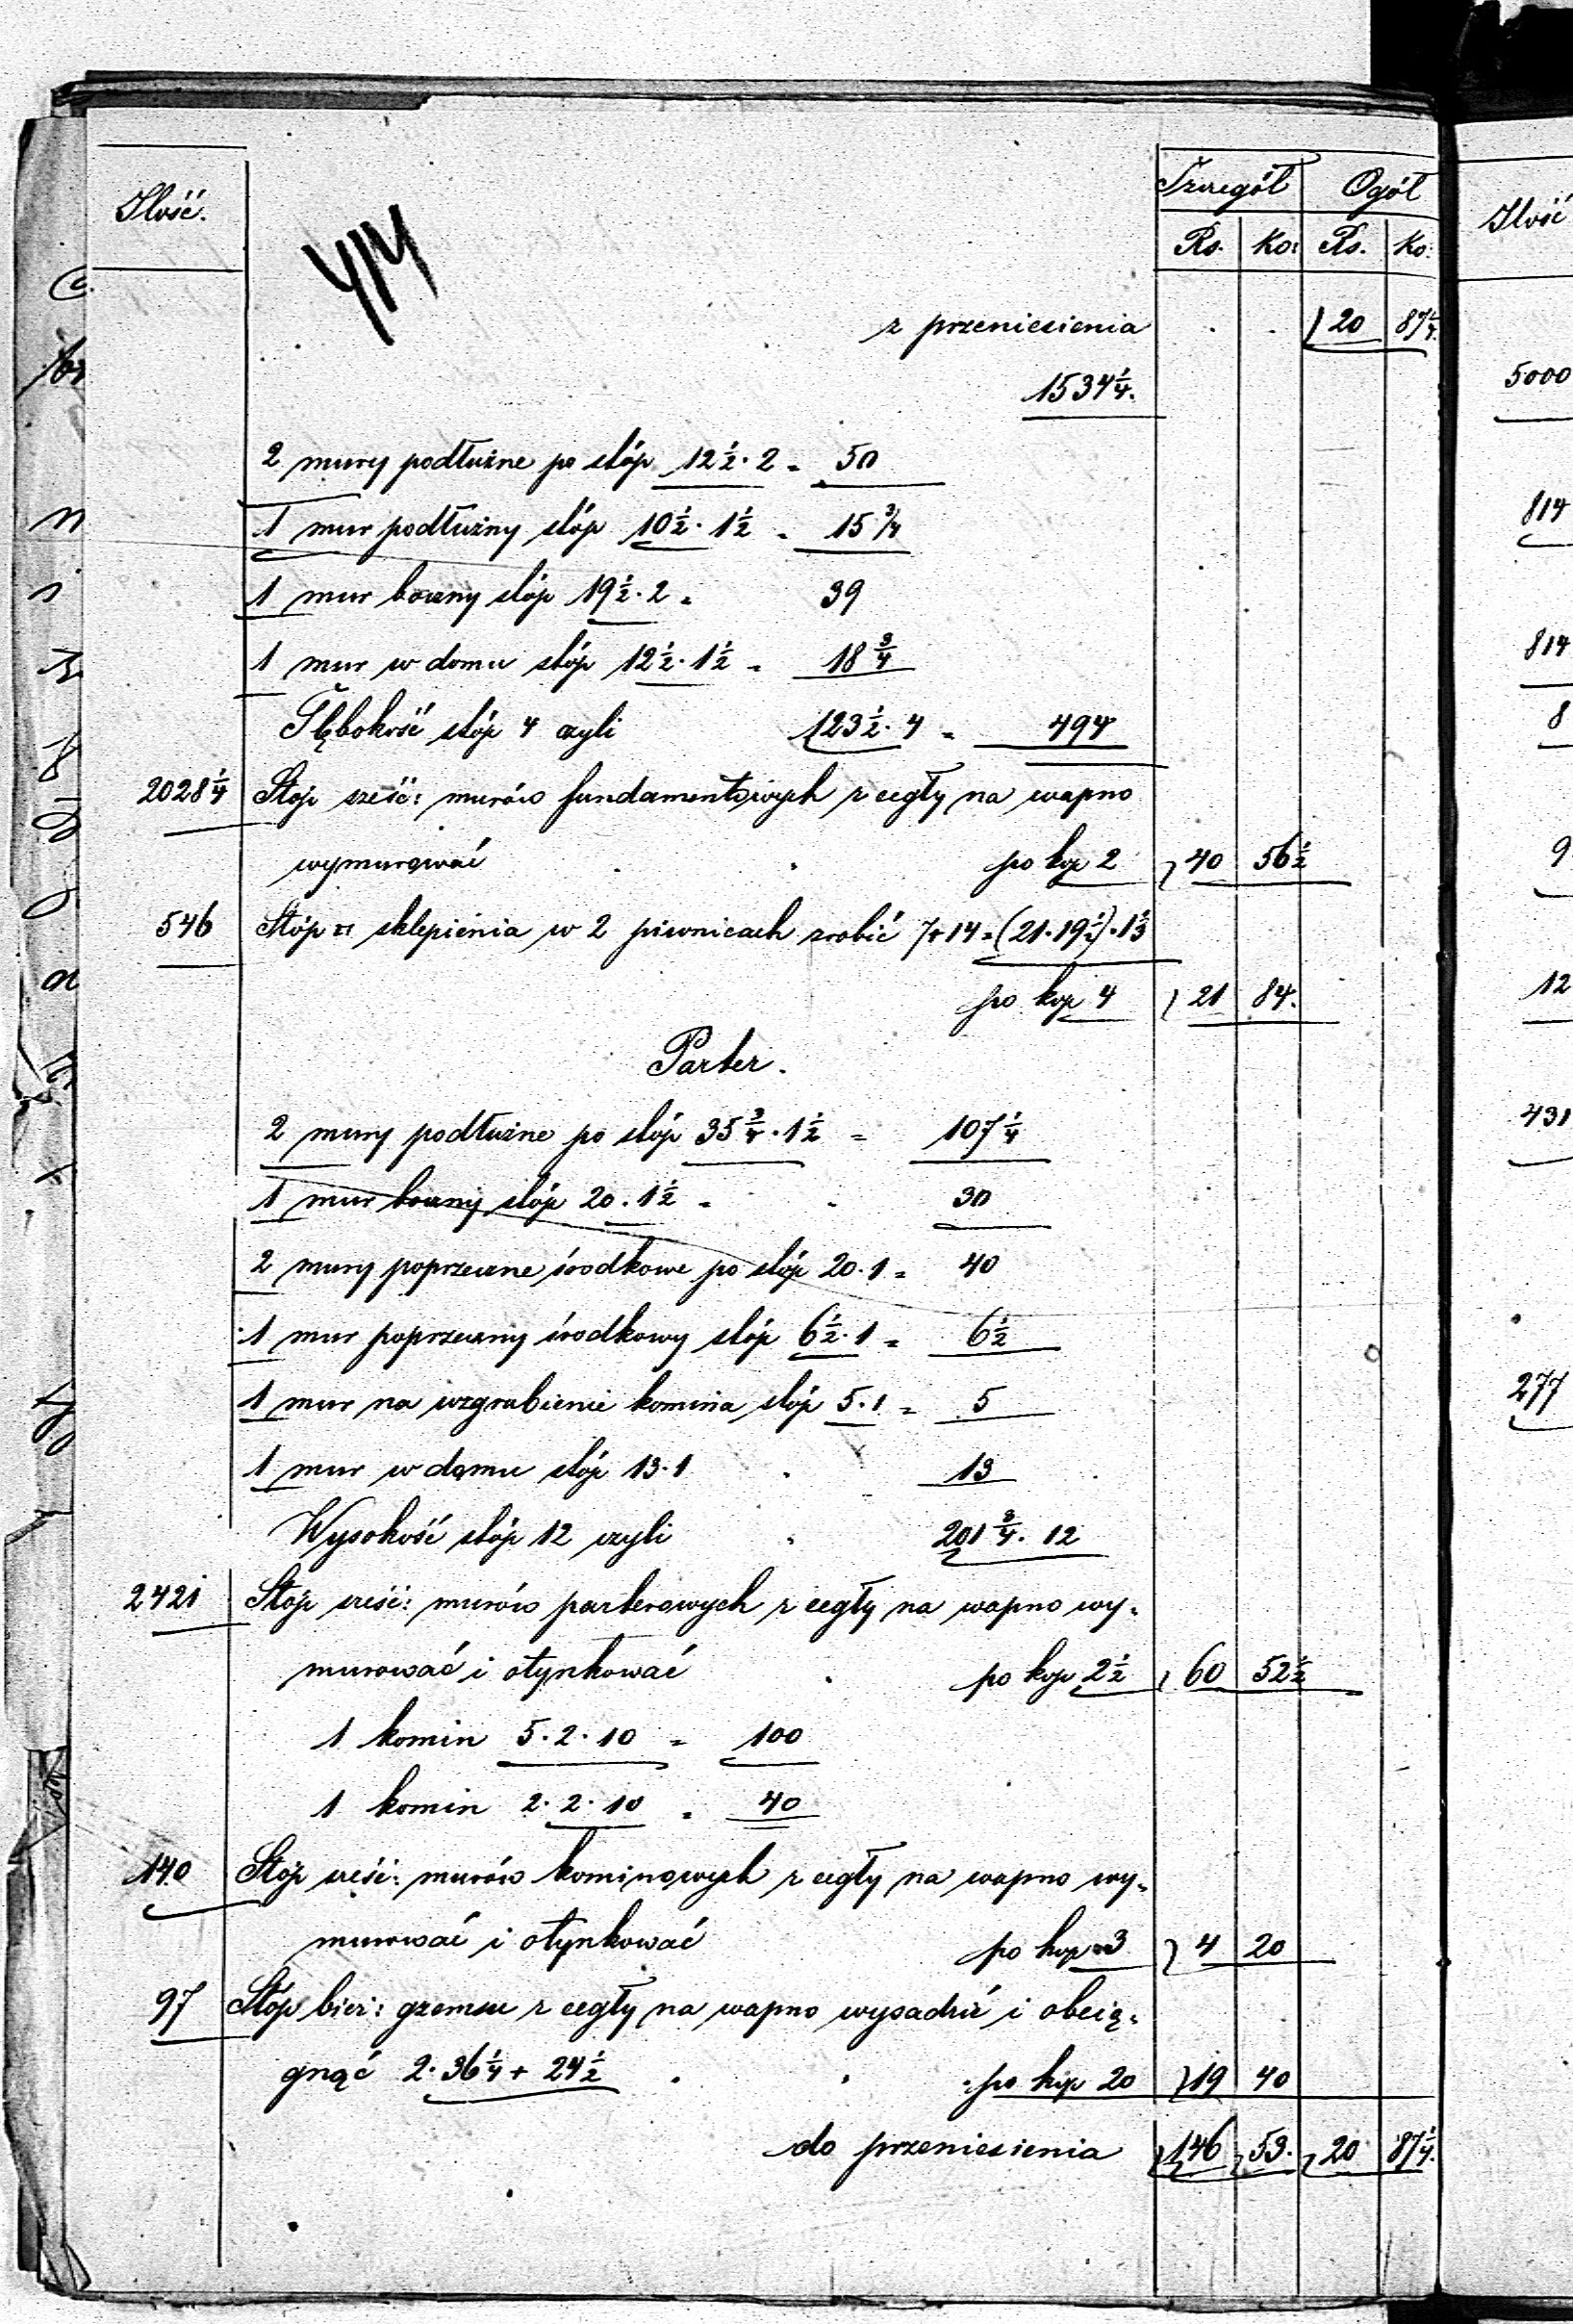 Ilość.
Szczegół Ogół
Rs. Ko: Rs. Ko:
Ilość
z przeniesienia . . 20 87¼
1534¼.
2 mury podłużne po stóp 12½ · 2 = 50
1 mur podłużny stóp 10½ · 1½ = 15¾
1 mur boczny stóp 19½ · 2 = 39
1 mur w domu stóp 12½ · 1½ = 18¾
Głębokość stóp 4 czyli 123½ · 4 = 494
2028¼ Stóp sześć: murów fundamentowych z cegły na wapno
wymurować po kop 2 40 56½
546 Stóp □ sklepienia w 2 piwnicach zrobić 7+14=(21·19½)·1⅓
po kop 4 21 84.
Parter.
2 mury podłużne po stóp 35¾ · 1½ = 107¼
1 mur boczny stóp 20 · 1½ = 30
2 mury poprzeczne środkowe po stóp 20 · 1 = 40
1 mur poprzeczny środkowy stóp 6½ · 1 = 6½
1 mur na wzgrubienie komina stóp 5 · 1 = 5
1 mur w domu stóp 13 · 1 13
Wysokość stóp 12 czyli 201¾ · 12
2421 Stóp sześć: murów parterowych z cegły na wapno wy=
murować i otynkować po kop 2½ 60 52½
1 komin 5 · 2 · 10 = 100
1 komin 2 · 2 · 10 = 40
140 Stóp sześć: murów kominowych z cegły na wapno wy=
murować i otynkować po kop 3 4 20
97 Stóp bież: gzemsu z cegły na wapno wysadzić i obcią=
gnąć 2 · 36¼ + 24½ po kop 20 19 40
do przeniesienia 146 53. 20 87¼.
5000
814
814
8
9
12
431
277